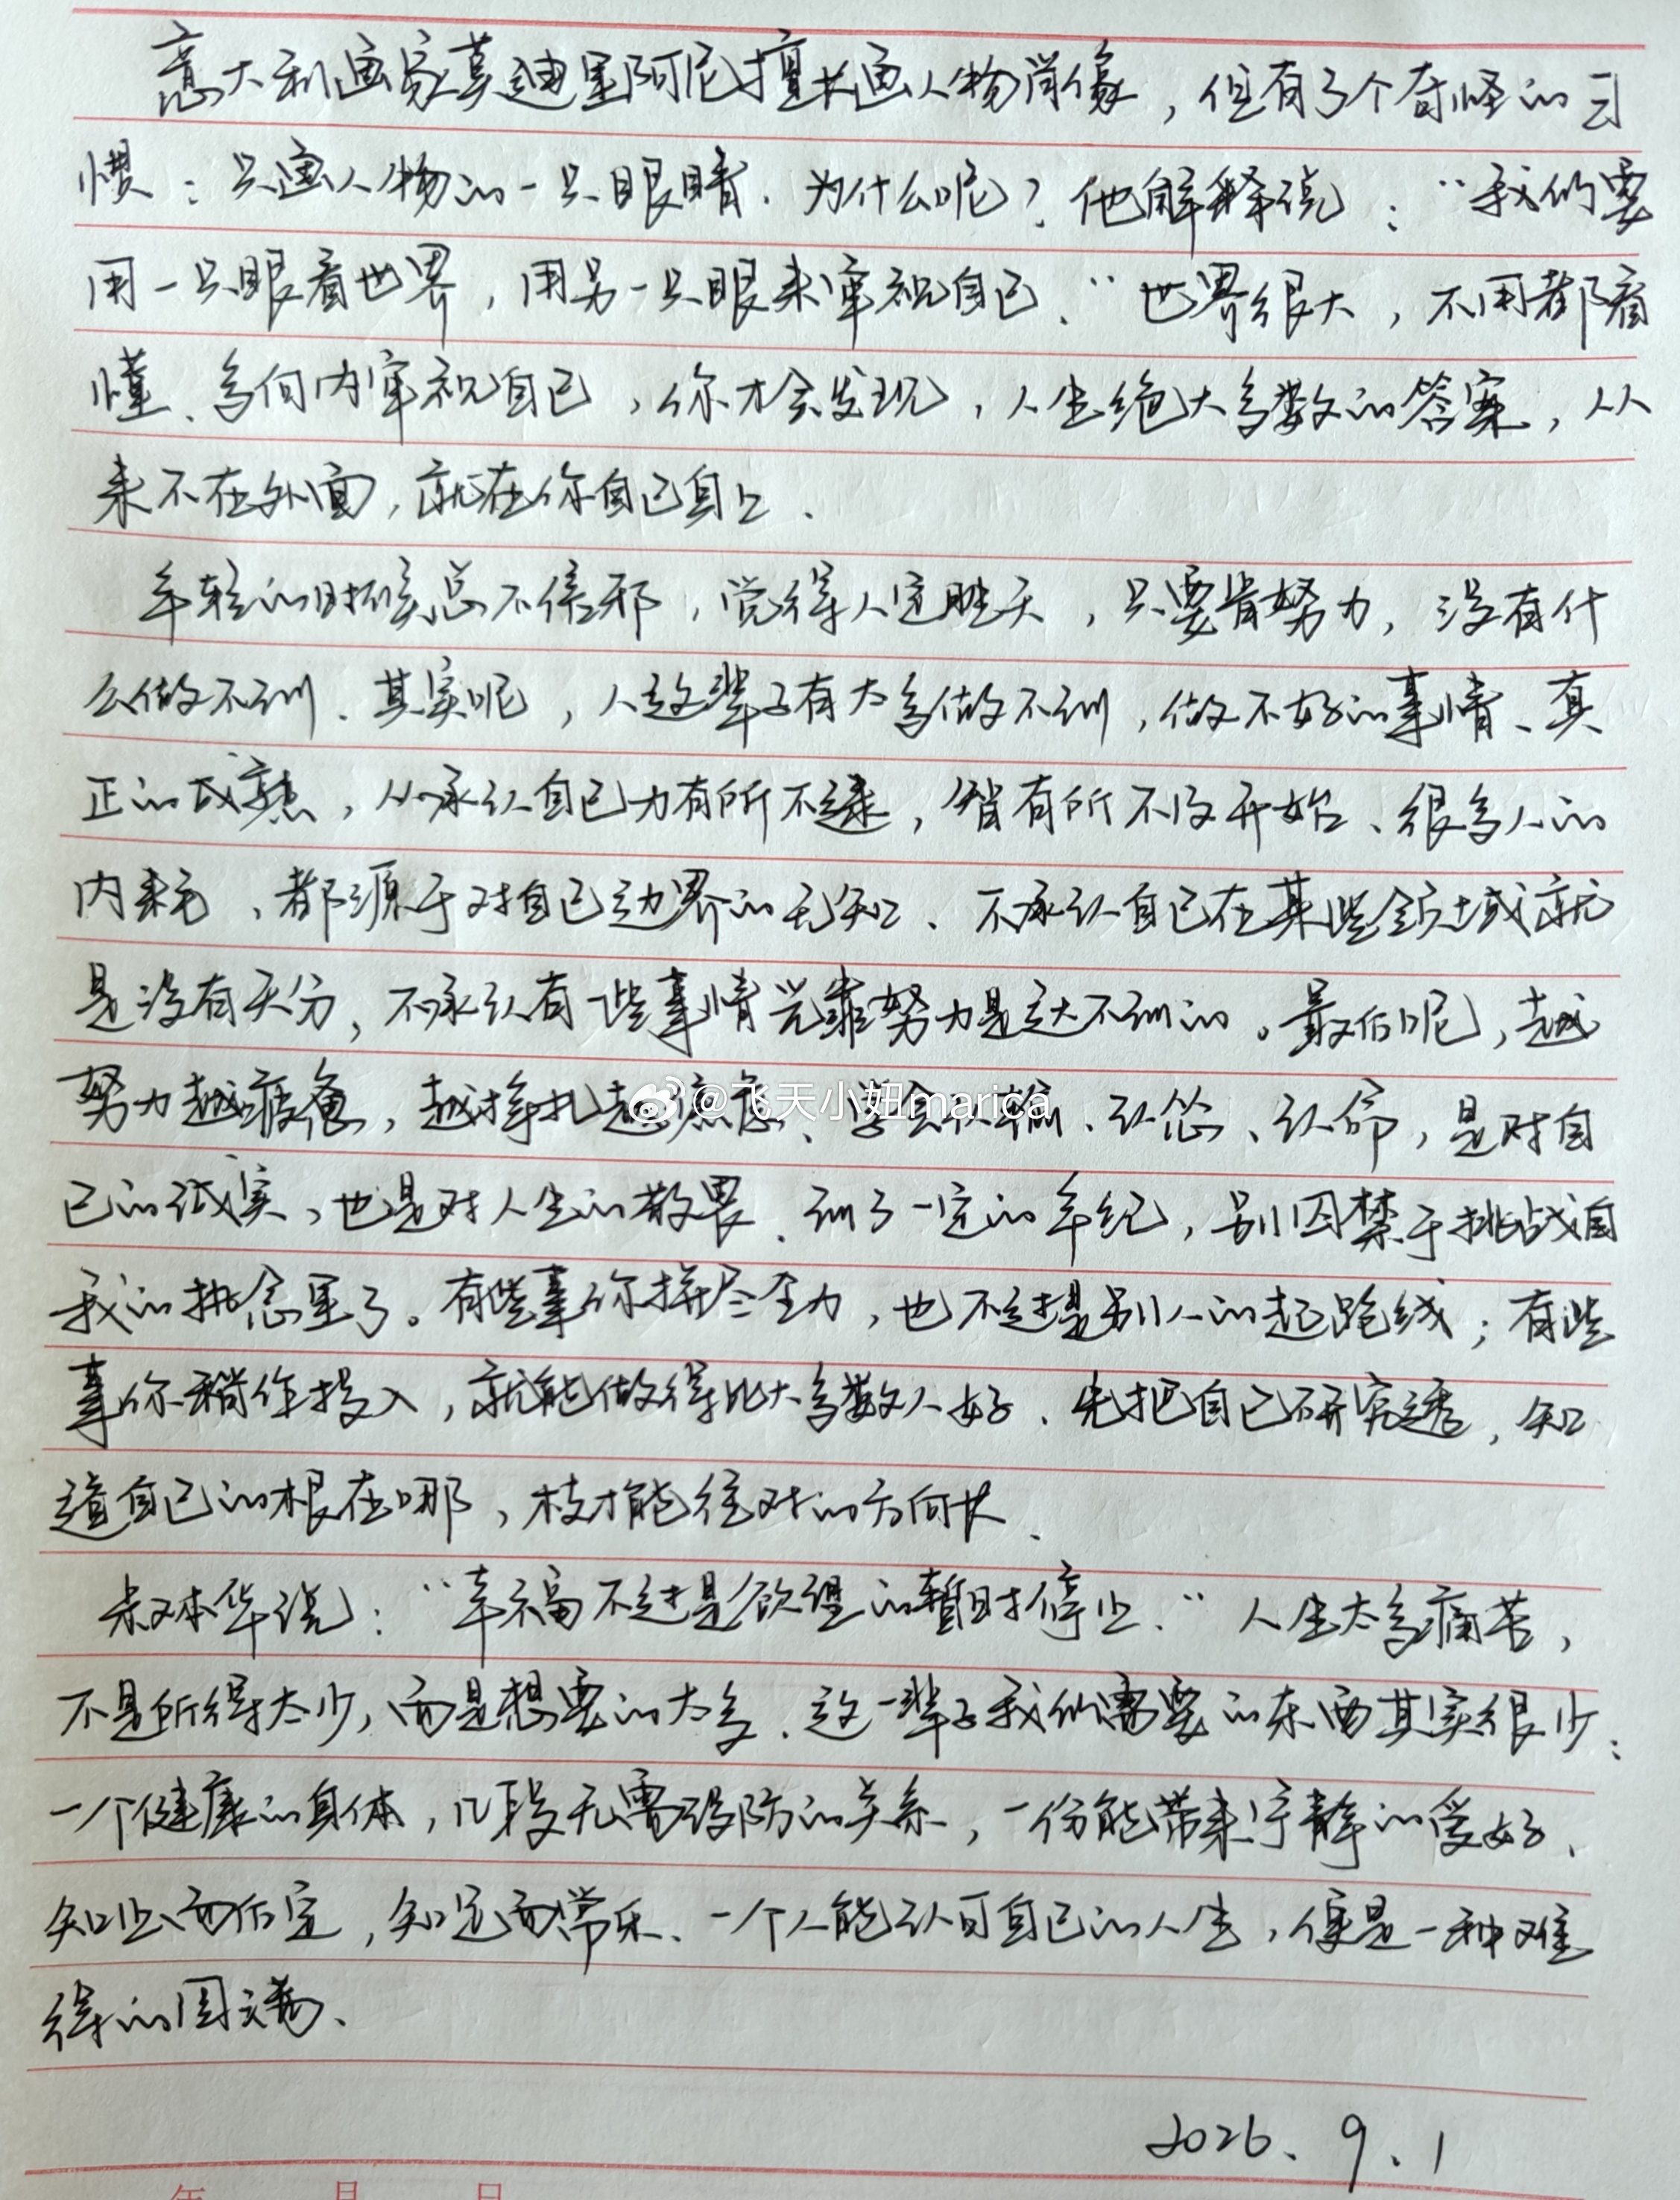 意大利画家莫迪里阿尼擅长画人物肖像，但有了个奇怪的习
惯：只画人物的一只眼睛.为什么呢？他解释说：“我们要
用一只眼看世界，用另一只眼来审视自己.”世界很大，不用都看
懂、多向内审视自己，你才会发现，人生绝大多数的答案，从
来不在外面，就在你自己身上.
年轻的时候总不信邪，觉得人定胜天，只要肯努力，没有什
么做不到、其实呢，人这辈子有太多做不到，做不好的事情、真
正的成熟，从承认自己力有所不逮，智有所不及开始、很多人的
内耗、都源于对自己边界的无知、不承认自己在某些领域就
是没有天分，不承认有一些事情光靠努力是达不到的。最后呢，越
努力越疲惫，越挣扎越焦虑、学会认输、认怂、认命，是对自
己的诚实、也是对人生的敬畏.到了一定的年纪，别囚禁于挑战自
我的执念里了。有些事你拼尽全力，也不过是别人的起跑线；有些
事你稍作投入，就能做得比大多数人好.先把自己研究透，知
道自己的根在哪，枝才能往对的方向长.
叔本华说：“幸福不过是欲望的暂时停止.”人生太多痛苦，
不是所得太少，而是想要的太多.这一辈子我们需要的东西其实很少：
一个健康的身体，几段无需设防的关系，一份能带来宁静的爱好.
知止而后定，知足而常乐.一个人能认可自己的人生，便是一种难
得的圆满、
2026.9.1
年 月 日
@飞天小妞marica